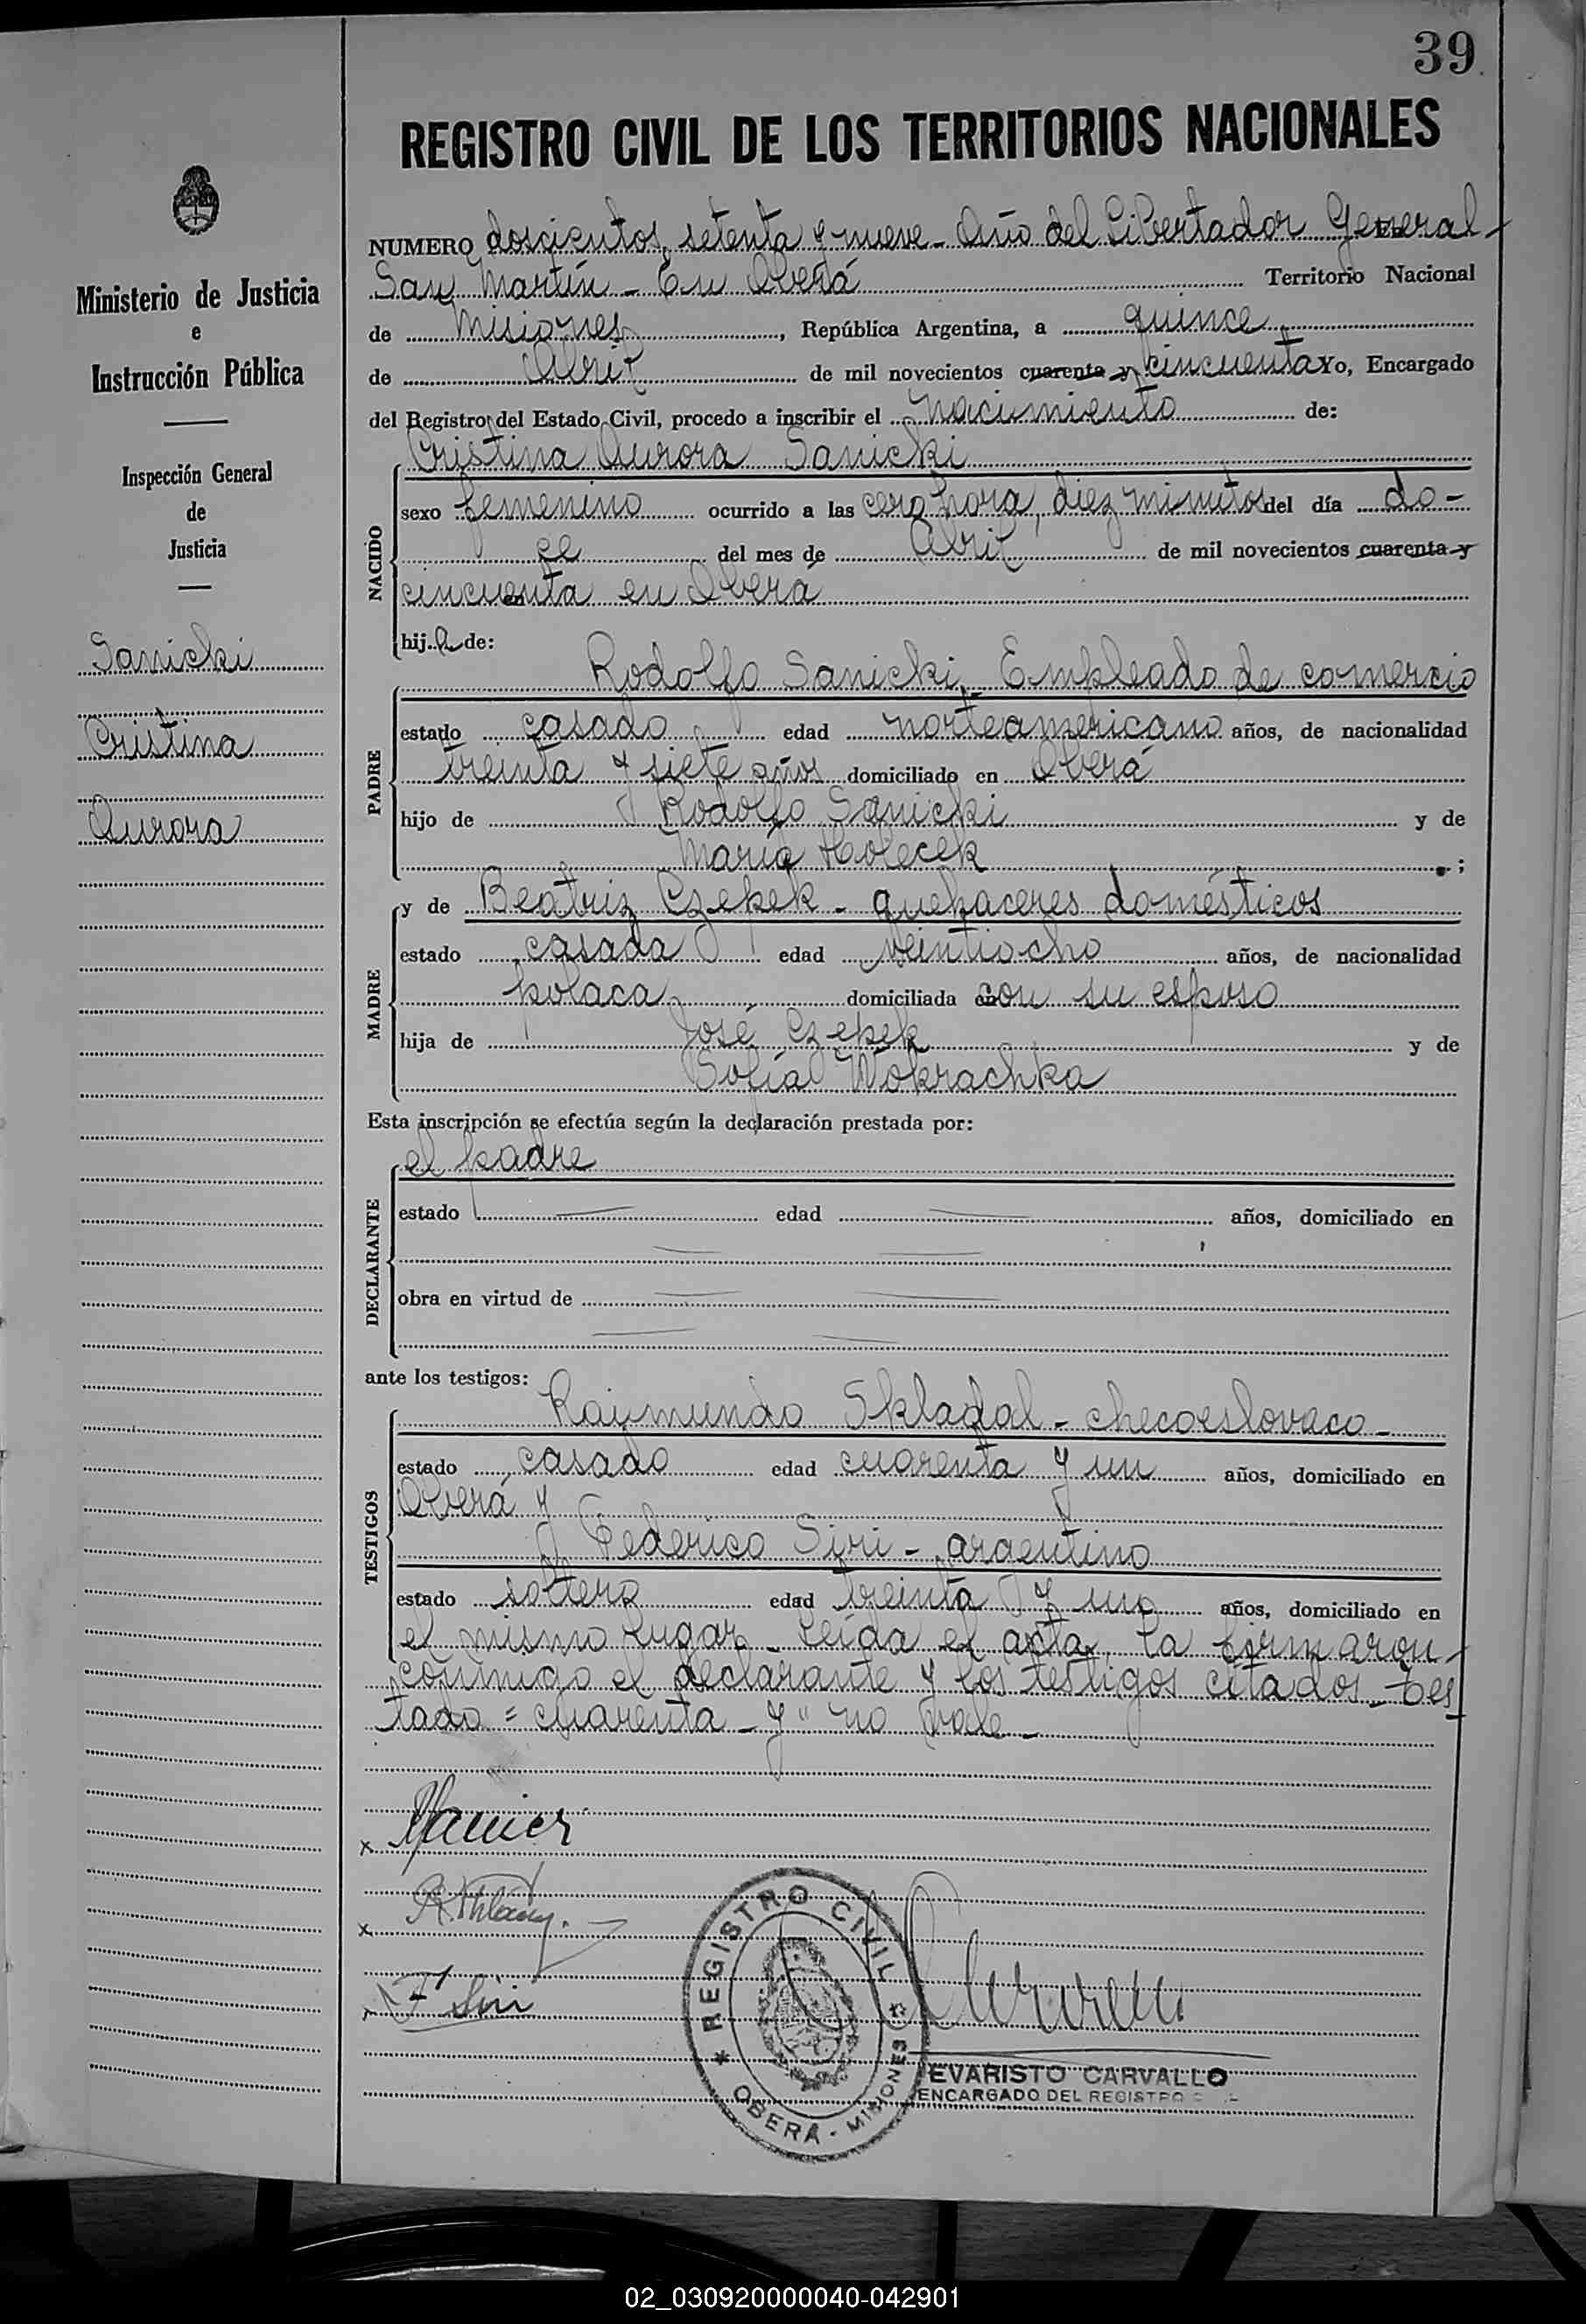 39
REGISTRO CIVIL DE LOS TERRITORIOS NACIONALES
NUMERO doscientos setenta y nueve - Año del Libertador General
San Martín - En Oberá Territorio Nacional
de Misiones, República Argentina, a quince
de Abril de mil novecientos cuarenta y cincuenta Yo, Encargado
del Registro del Estado Civil, procedo a inscribir el nacimiento de:
Cristina Aurora Sanicki
NACIDO
sexo femenino ocurrido a las cero hora, diez minutos del día do-
ce del mes de Abril de mil novecientos cuarenta y
cincuenta en Oberá
hija de:
PADRE
Rodolfo Sanicki - Empleado de comercio
estado casado edad norteamericano años, de nacionalidad
treinta y siete años domiciliado en Oberá
hijo de Rodolfo Sanicki y de
María Holecek ;
MADRE
y de Beatriz Czepek - quehaceres domésticos
estado casada edad veintiocho años, de nacionalidad
polaca domiciliada con su esposo
hija de José Czepek y de
Sofía Wokrachka
Esta inscripción se efectúa según la declaración prestada por:
DECLARANTE
el padre
estado edad años, domiciliado en
obra en virtud de
ante los testigos:
TESTIGOS
Raimundo Skladal - checoeslovaco -
estado casado edad cuarenta y un años, domiciliado en
Oberá y
Federico Siri - argentino
estado soltero edad treinta y uno años, domiciliado en
el mismo lugar - Leída el acta, la firmaron
conmigo el declarante y los testigos citados - Tes
tado = cuarenta - y" no vale -
x
x
x F Siri
REGISTRO CIVIL
* OBERÁ - MISIONES *
EVARISTO CARVALLO
ENCARGADO DEL REGISTRO
Ministerio de Justicia
e
Instrucción Pública
Inspección General
de
Justicia
Sanicki
Cristina
Aurora
02_030920000040-042901